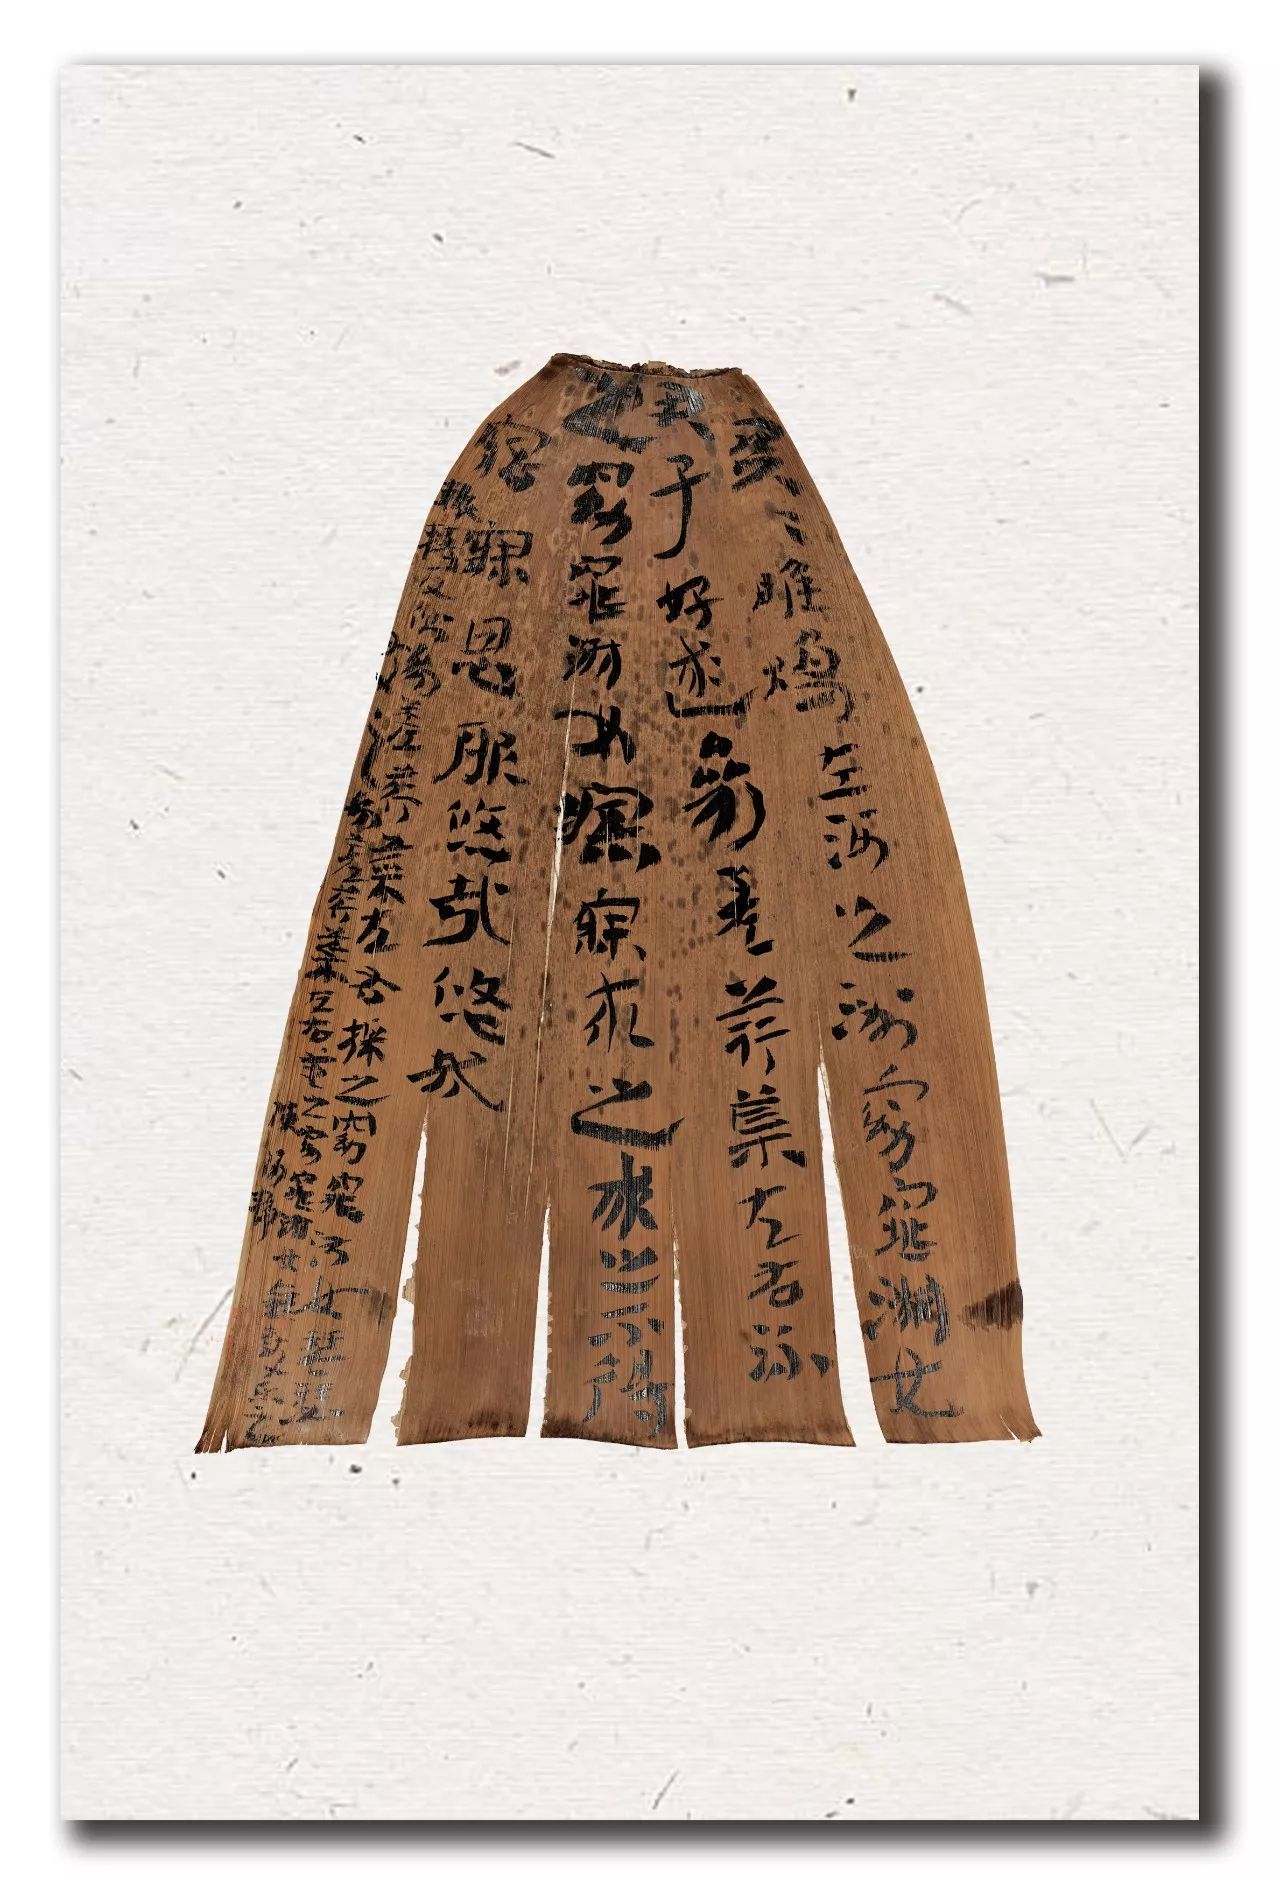 關〻雎鳩在河之洲窈窕淑女
君子好逑參差荇菜左右流
之窈窕淑女寤寐求之求之不得
寤寐思服悠哉悠哉
輾轉反側參差荇菜左右採之窈窕淑女琴瑟
友之參差荇菜左右芼之窈窕淑女鐘鼓樂之